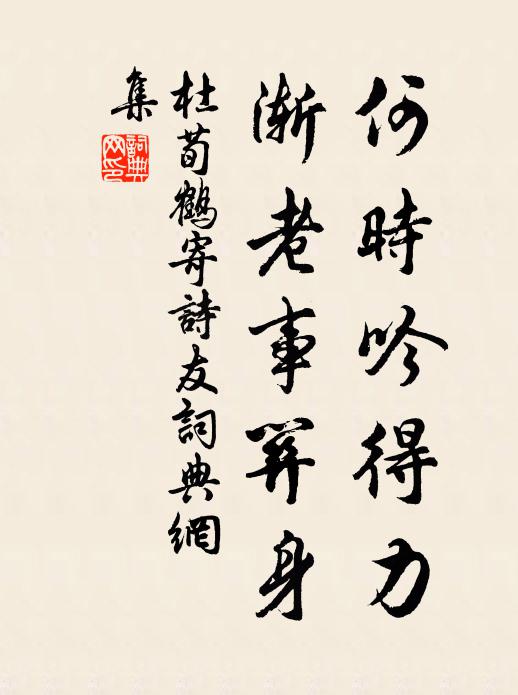 何時吟得力
漸老事關身
杜荀鶴寄詩友詞典網
集
詞典
网印